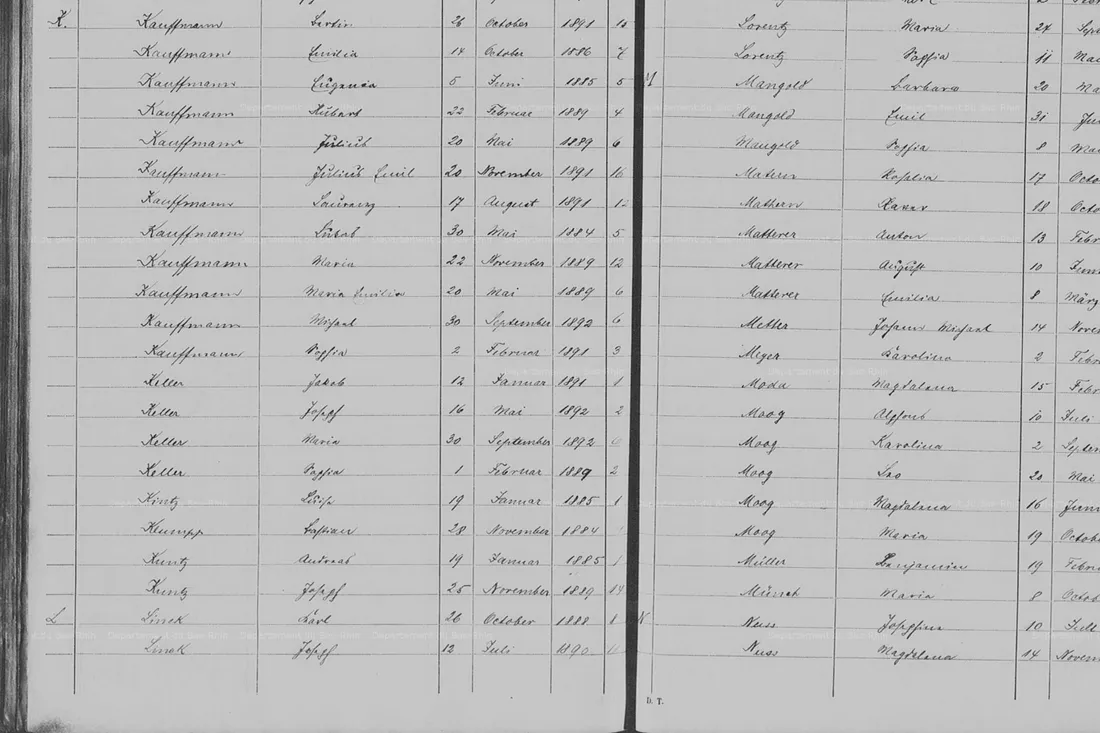 K. Kauffmann 26 October 1891
Kauffmann Emilia 14 October 1886 7
Kauffmann Eugenia 5 Juni 1885 5
Kauffmann Hubert 22 Februar 1889 4
Kauffmann Julius 20 Mai 1889 6
Kauffmann Julius Emil 20 November 1891 16
Kauffmann Laurenz 17 August 1891 12
Kauffmann Lukas 30 Mai 1884 5
Kauffmann Maria 22 November 1889 12
Kauffmann Maria Emilia 20 Mai 1889 6
Kauffmann Michael 30 September 1892 6
Kauffmann Sophia 2 Februar 1891 3
Keller Jakob 12 Januar 1891 1
Keller Joseph 16 Mai 1892 2
Keller Maria 30 September 1892
Keller Sophia 1 Februar 1889 2
Kintz Luise 19 Januar 1885 1
Klumpp Bastian 28 November 1884
Kuntz Andreas 19 Januar 1885 1
Kuntz Joseph 25 November 1889 14
L Linck Karl 26 October 1888 8
Linck Joseph 12 Juli 1890
Lorentz Maria 24
Lorentz Sophia 11 Mai
M Mangold Barbara 20
Mangold Emil 31
Mangold Sophia 8
Matern Rosalia 17 Octo
Mathern Xaver 18 Octo
Matterer Anton 13 Febr
Matterer August 10
Matterer Emilia 8 März
Metter Johann Michael 14 Nove
Meyer Karolina 2 Febr
Moda Magdalena 15 Febr
Moog Alphons 10 Juli
Moog Karolina 2 Septem
Moog Leo 20 Mai
Moog Magdalena 16 Juni
Moog Maria 19 Octobe
Müller Benjamin 19 Febru
Münch Maria 8 Octobe
N Nuss Josephina 10 Juli
Nuss Magdalena 14 Novem
D. T.